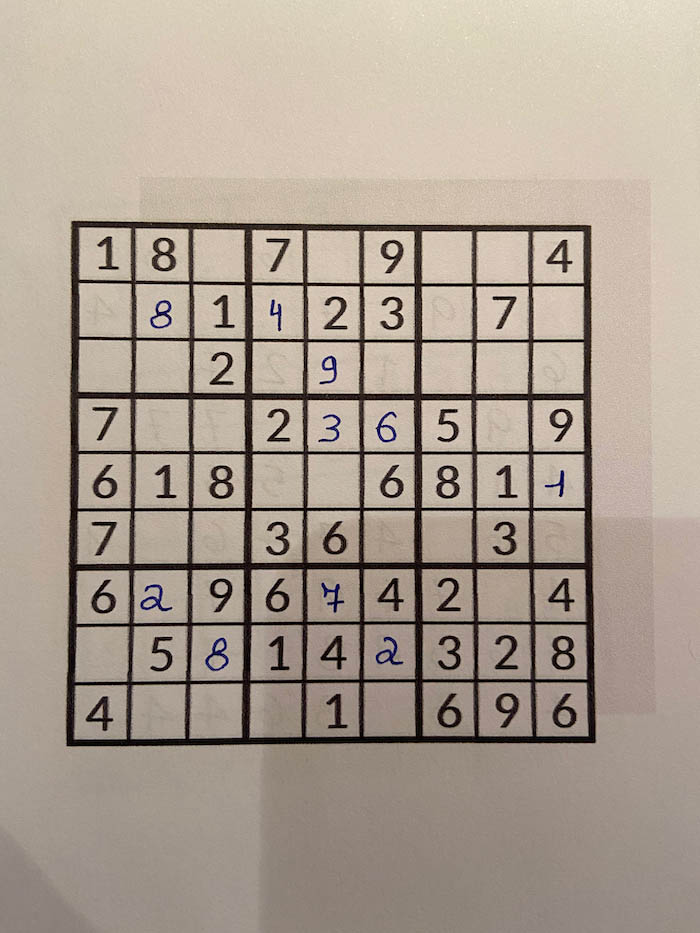 1 8 7 9 4
8 1 4 2 3 7
2 9
7 2 3 6 5 9
6 1 8 6 8 1 1
7 3 6 3
6 2 9 6 7 4 2 4
5 8 1 4 2 3 2 8
4 1 6 9 6